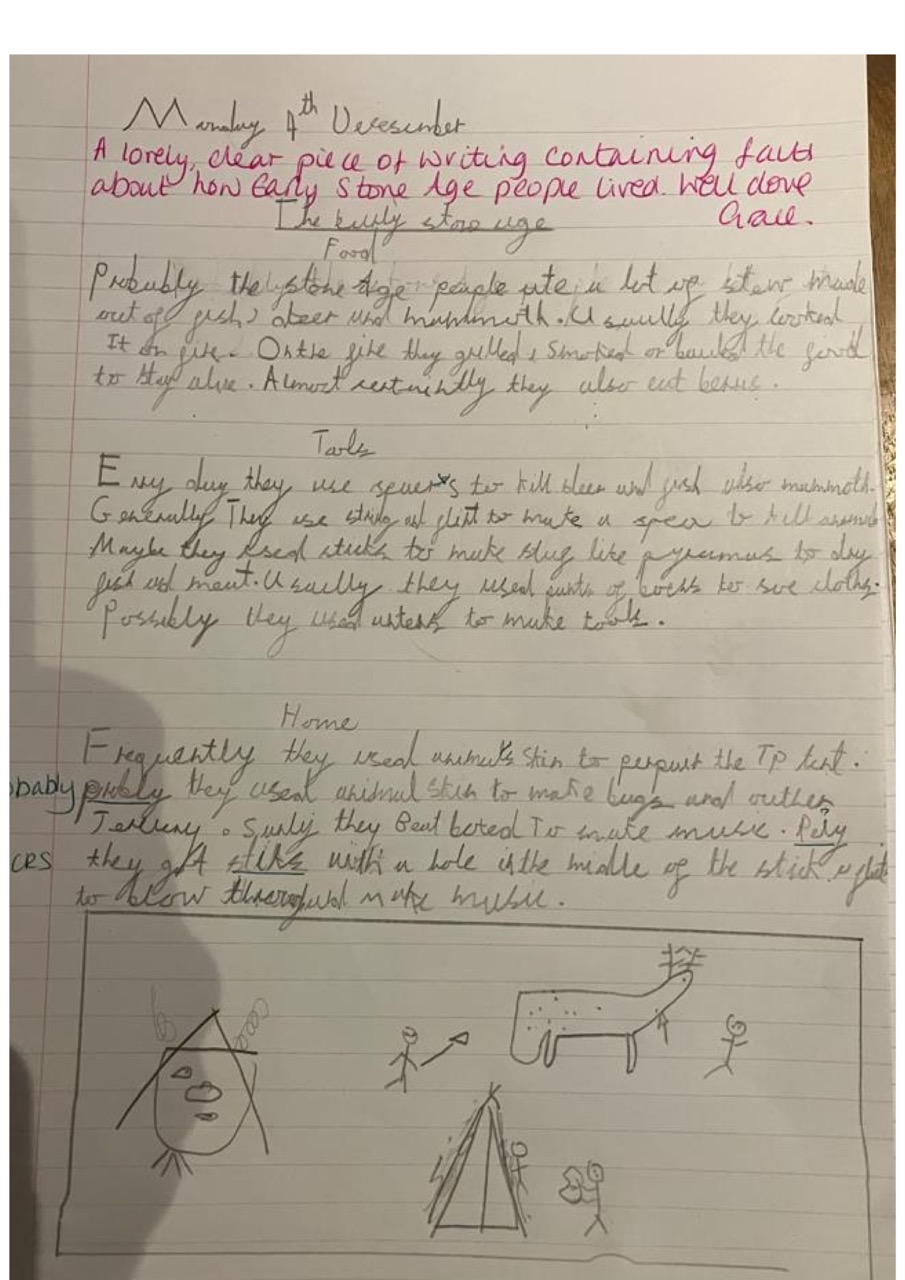 Monday 4th Decesember
A lovely, clear piece of writing containing facts
about how Early Stone Age people lived. Well done
Grace.
The Early stone age
Food
Probably the stone Age people ate a lot of stew made
out of fish, deer and mammoth. Usaully they cooked
It on fire. On the fire they grilled, smoked or the food
to stay alive. Almost they also eat
Tools
they use spears to kill deer and fish also mammoth.
Generally They use string and flint to make a spear to kill
Maybe they used sticks to make like to dry
fish and meat. Usaully they used of to cloths.
Possibly they used to make tools.
Home
Frequently they used animals skin to the TP tent.
bably probly they used animal skin to make bags and
. they Beat To make music.
CRS they got stiks with a hole in the middle of the stick
to blow through and make music.